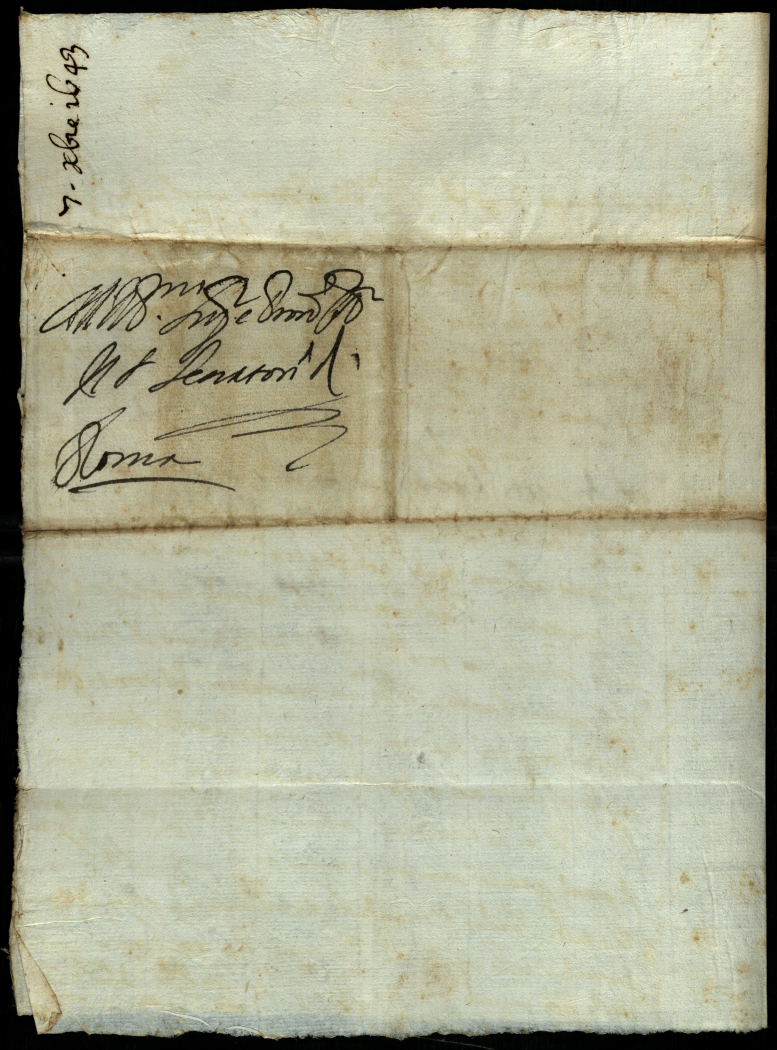 7. xbre 1643
All Ill.mo Sig.re e P̃ron
Il S. Senatore di
Roma